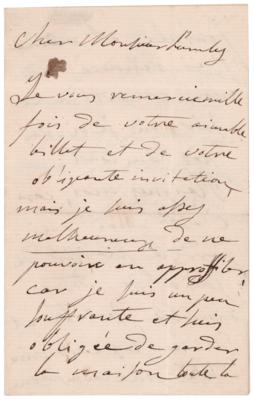 Cher Monsieur
Je vous remercie mille
fois de votre aimable
billet et de votre
obligeante invitation,
mais je suis assez
malheureuse de ne
pouvoir en
car je suis un peu
souffrante et suis
obligée de garder
la maison toute la